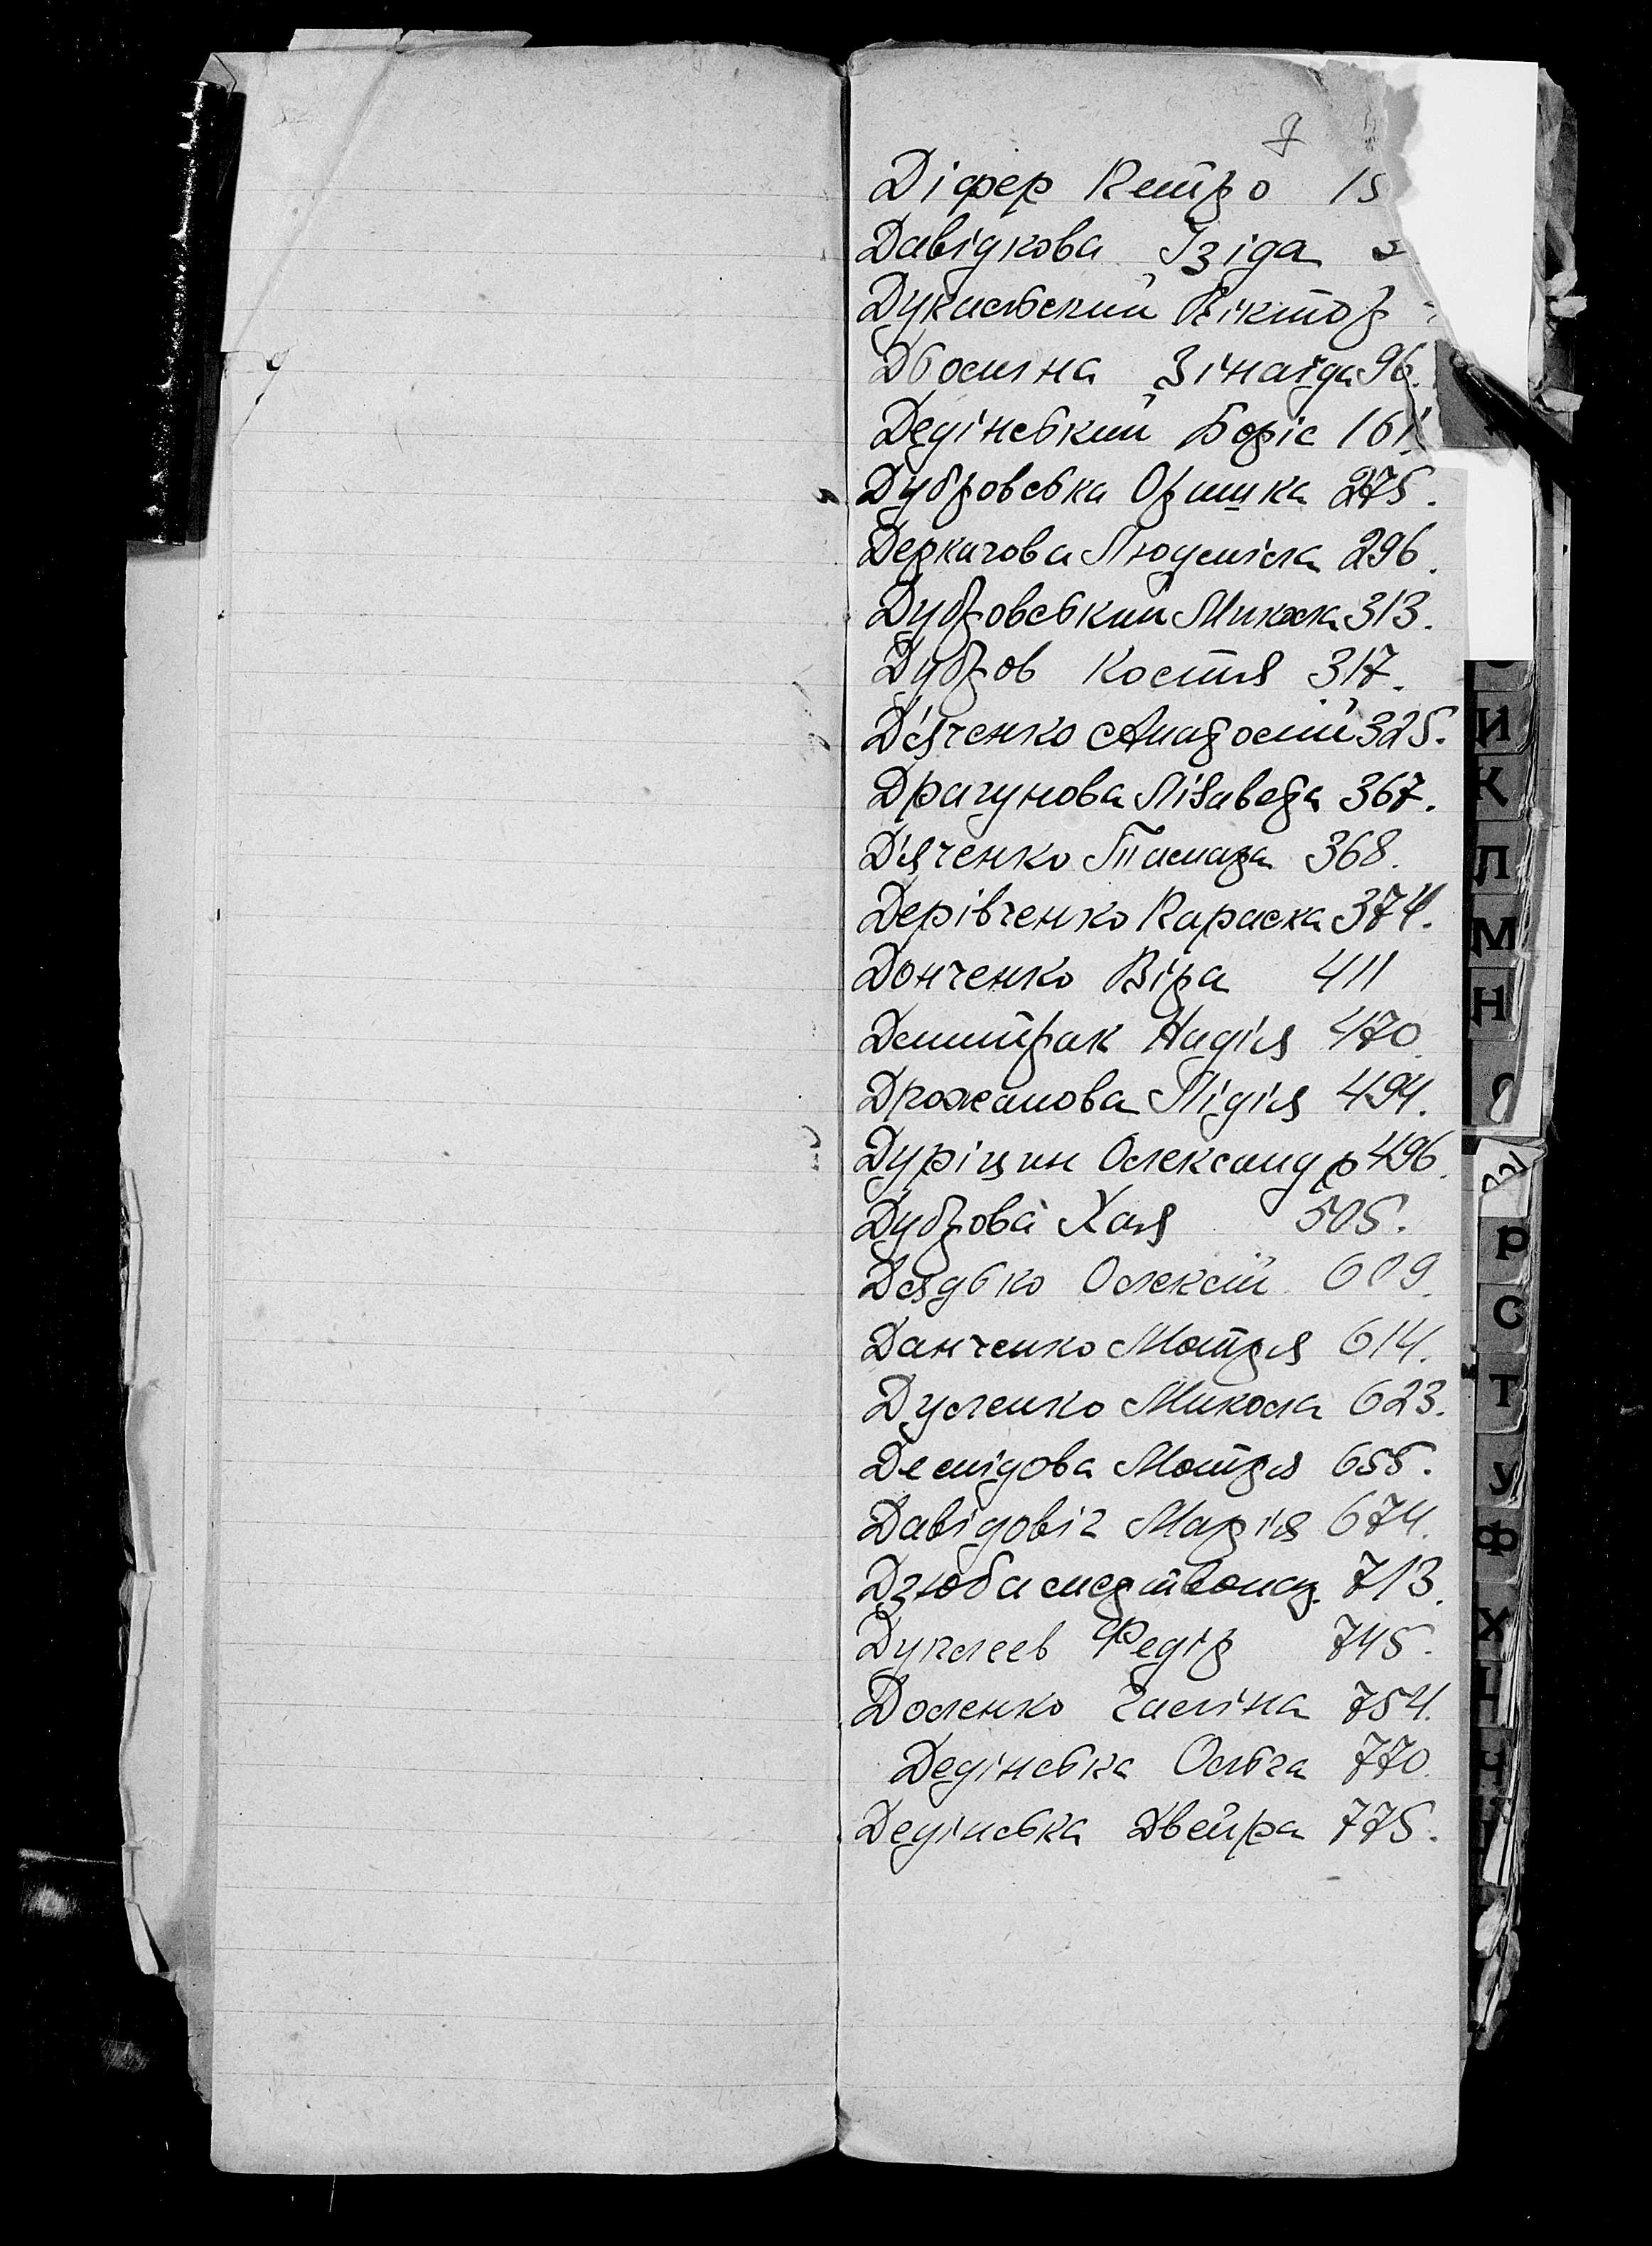 7
Діфер Петро 15
Давідкова Ізіда
Дукельський Віктор
Дбосина Зінаїда 96.
Дедінський Боріс 161.
Дубровська Оришка 275.
Деркачова Людміла 296.
Дубровський Микола 313.
Дубров Костя 317.
Д'яченко Амбросій 325.
Драгунова Лізавета 367.
Д'яченко Тамара 368.
Дерівченко Параска 374.
Донченко Віра 411
Дмитрак Надія 470.
Дрожанова Лідія 494.
Дуріцин Олександр 496.
Дуброва Халя 505.
Дядько Олексій 609.
Данченко Мотря 614.
Дученко Микола 623.
Демідова Мотря 655.
Давідовіч Марія 674.
Дзюба мертвонар. 713.
Дуплеев Федір 745.
Доленко Галіна 754.
Дедінська Ольга 770.
Дедінська Двейра 775.
И
К
Л
М
Н
Р
С
Т
У
Ф
Х
Ч